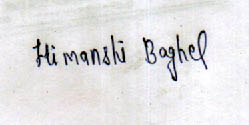 Himanshi Baghel